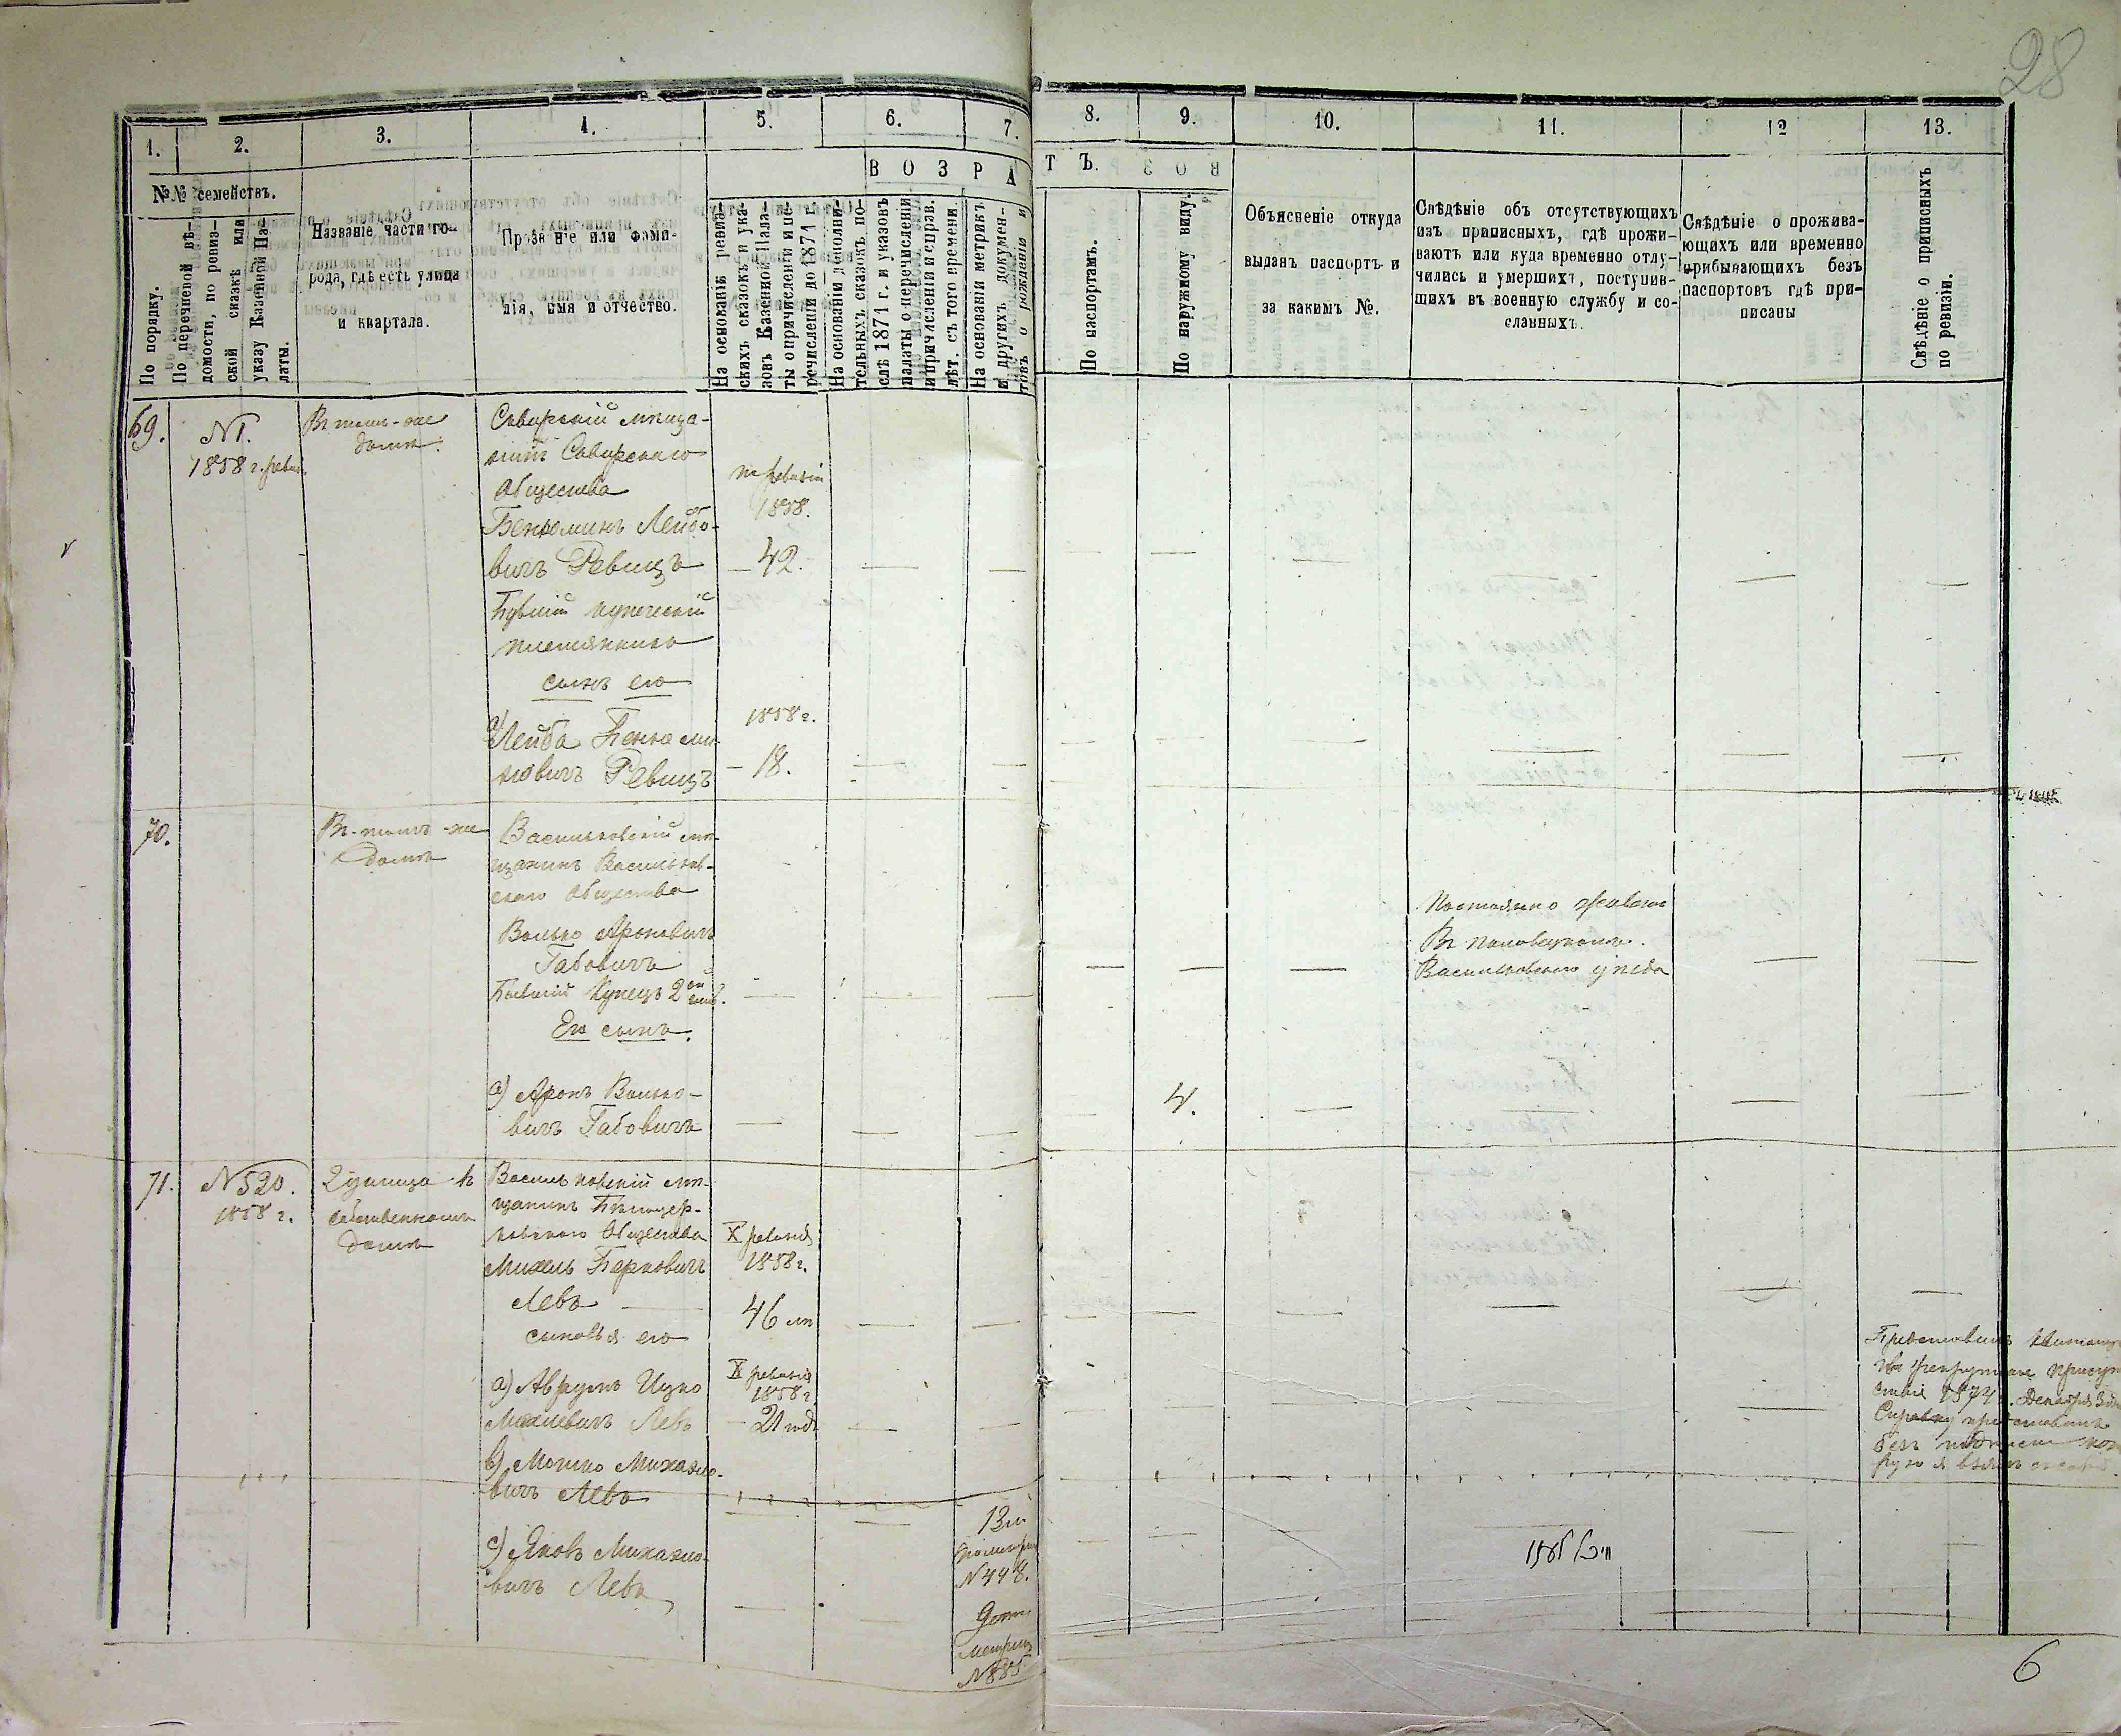 28
1.
2.
3.
4.
5.
6.
7.
8.
9.
10.
11.
12
13.
№№ семействъ.
ВОЗРА
ТЪ.
По порядку.
По перечневой вѣ-
домости, по ревиз-
ской сказкѣ или
указу Казенной Па-
латы.
Названіе части го-
рода, гдѣ есть улица
и квартала.
Прозв н'е или фами-
лія, имя и отчество.
На основаніѣ ревиз-
скихъ сказокъ и ука-
зовъ Казенной Пала-
ты о причисленіи и пе-
речисленіи до 1871 г.
На основаніи дополни-
тельныхъ сказокъ по-
слѣ 1871 г. и указовъ
палаты о перечисленіи
и причисленіи и справ.
лѣт. съ того времени.
На основаніи метрикъ
и другихъ докумен-
товъ о рожденіи и
По паспортамъ.
По наружному виду.
Объясненіе откуда
выданъ паспортъ и
за какимъ №.
Свѣдѣніе объ отсутствующихъ
изъ приписныхъ, гдѣ прожи-
ваютъ или куда временно отлу-
чились и умершихъ, поступив-
шихъ въ военную службу и со-
сланныхъ.
Свѣдѣніе о прожива-
ющихъ или временно
прибывающихъ безъ
паспортовъ гдѣ при-
писаны
Свѣдѣніе о приписныхъ
по ревизіи.
69.
№1.
1858 г. ревиз.
Въ томъ-же
домѣ.
Сквирскій мѣща-
нинъ Сквирскаго
Общества
Беньоминъ Лейбо-
вичъ Ревицъ
Бывшій купеческій
племянникъ
сынъ его
а) Лейба Беньоми-
новичъ Ревицъ
ревизіи
1858.
42.
1858 г.
18.
70.
Въ-томъ-же
домѣ
Васильковскій мѣ-
щанинъ Васильков-
скаго Общества
Волько Ароновичъ
Габовичъ
Бывшій Купецъ 2ой гил.
Его сынъ.
а) Аронъ Волько-
вичъ Габовичъ
4.
Постоянно
Въ
Васильковскаго уѣзда
71.
№520.
1858 г.
2 улица въ
собственномъ
домѣ
Васильковскій мѣ-
щанинъ Бѣлоцер-
ковскаго Общества
Михель Берковичъ
Левъ
сыновья его
а) Аврумъ Ицко
Михелевичъ Левъ
в) Мошко Михелио-
вичъ Левъ
с) Яковъ Михелио-
вичъ Левъ
X ревизія
1858 г.
46 лѣ
X ревизія
1858 г.
21 годъ
13
№448.
9
метриц
№885
1874 Декабря
Справку
6